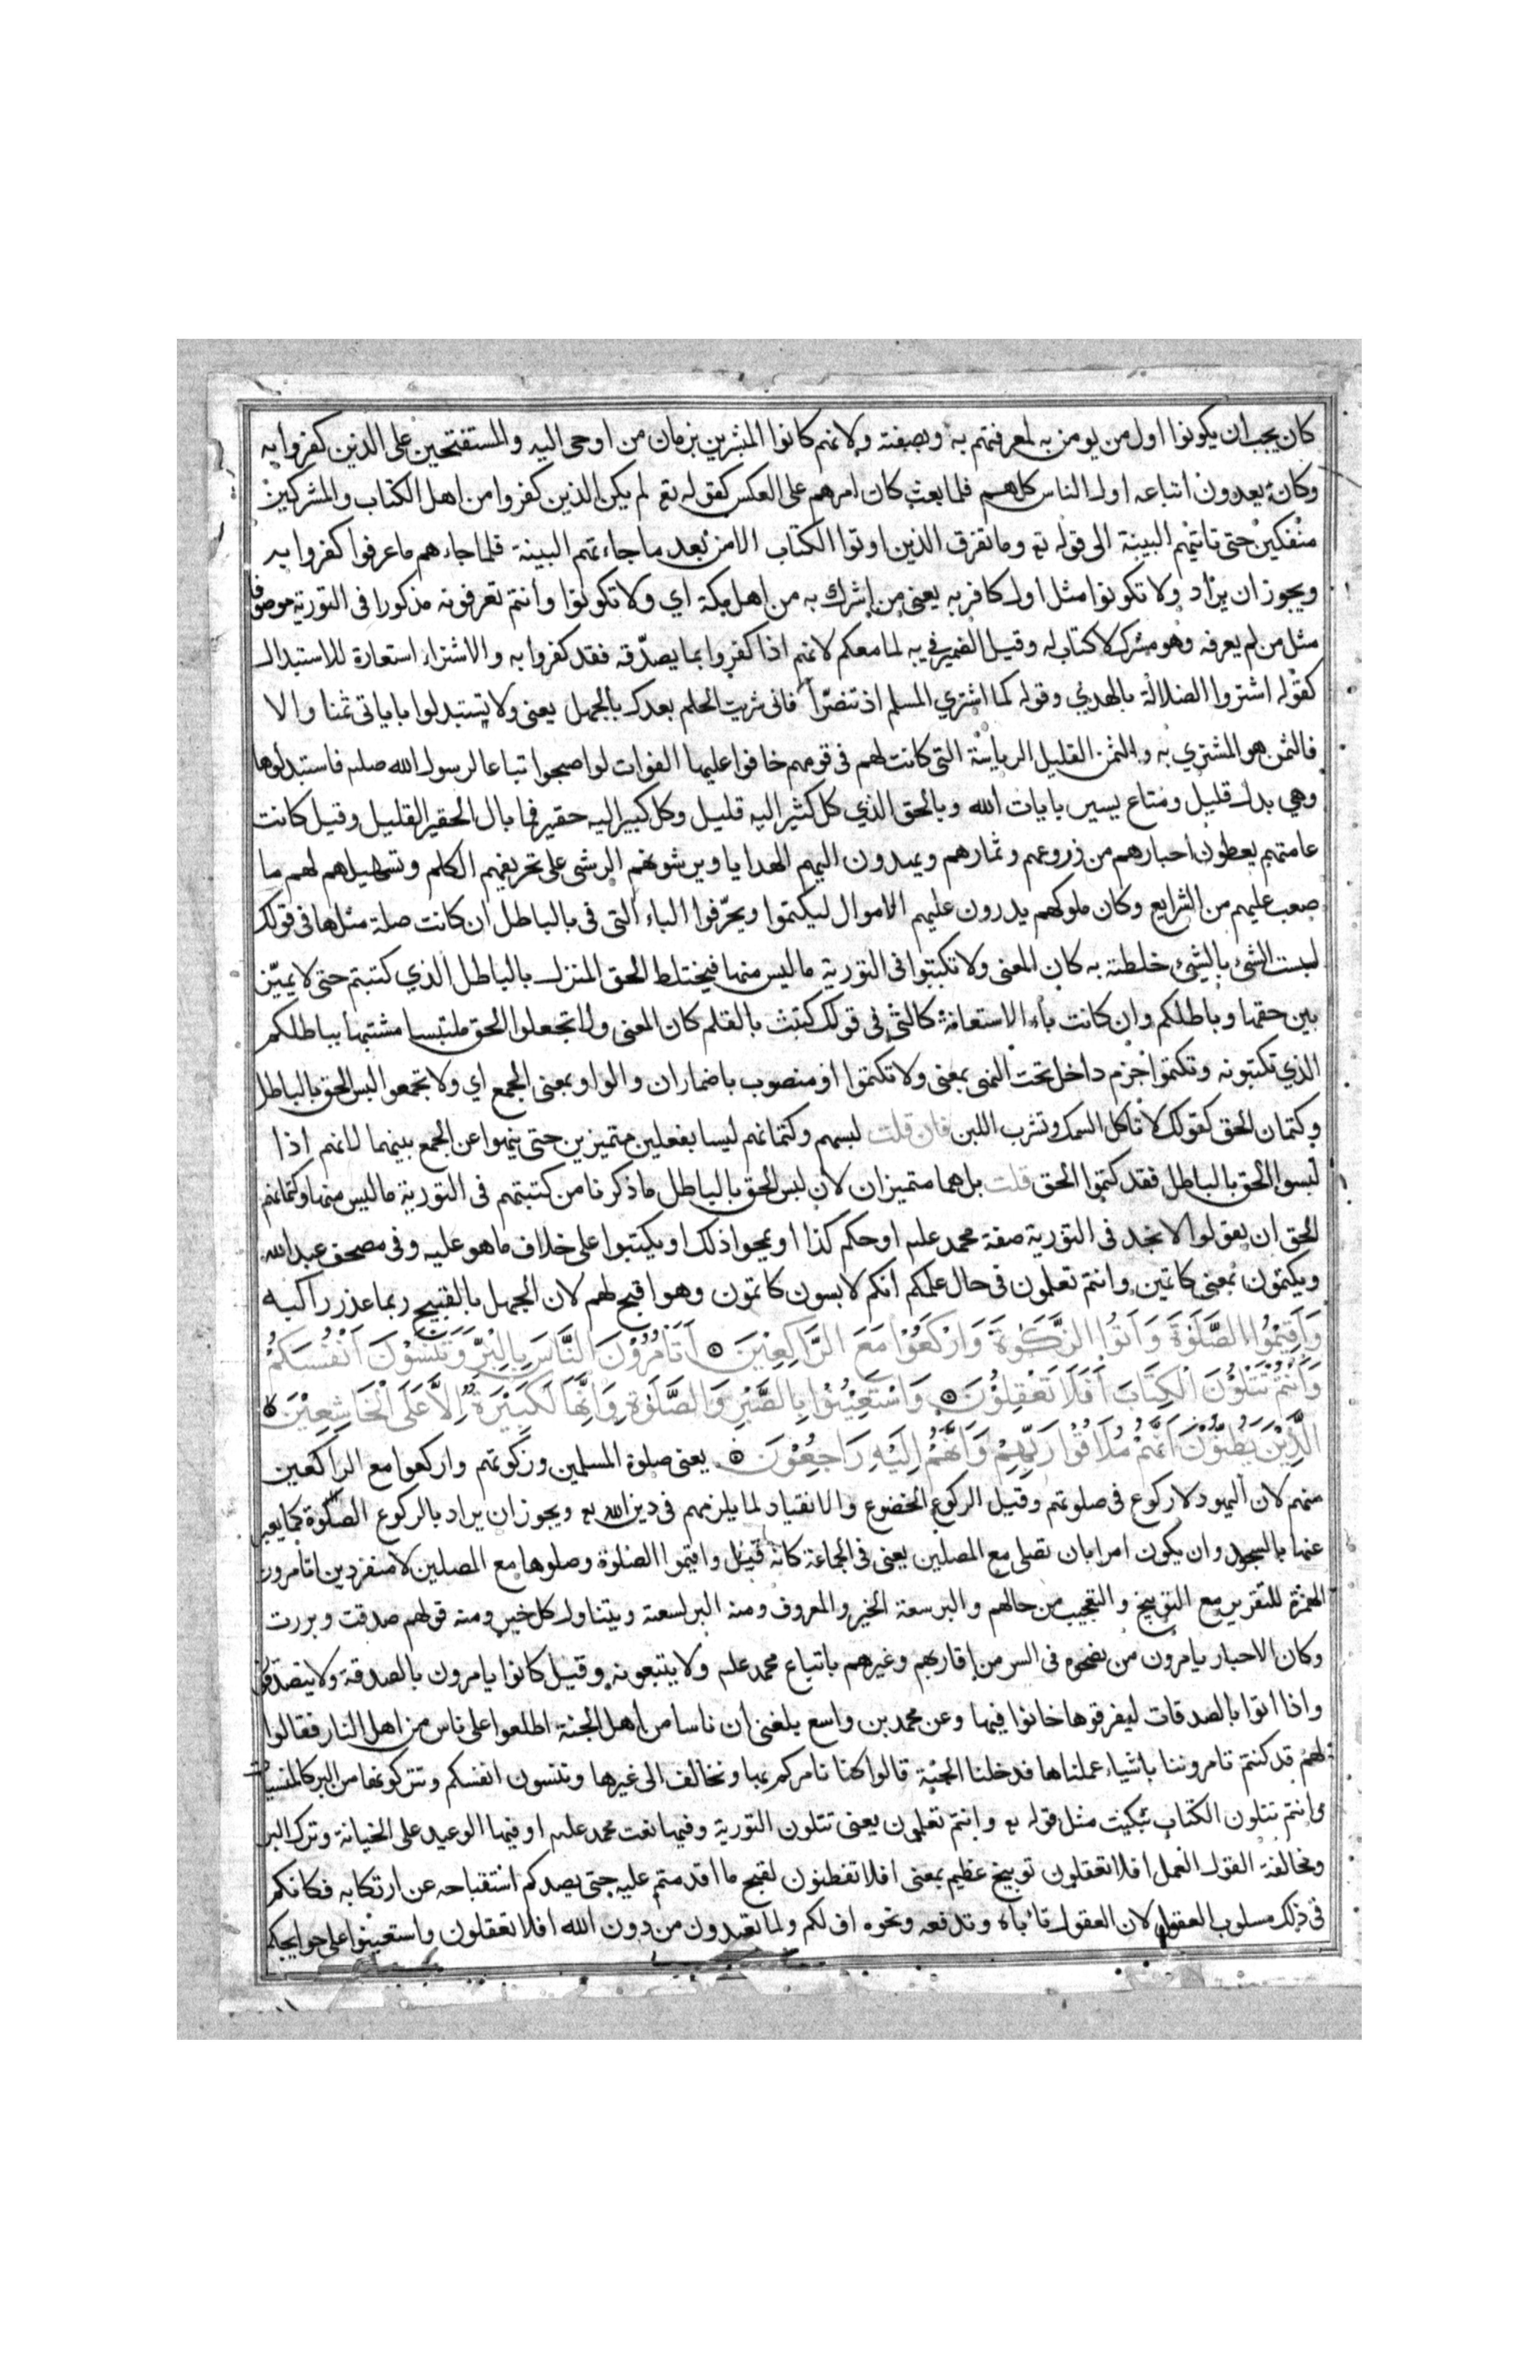 كان يجب ان يكونوا اول من يومن به لمعرفتهم به وبصفته ولانهم كانوا المبشرين بزمان من اوحى اليه والمستفتحين على الذين كفروا به
وكانوا يعدون اتباعه اول الناس كلهم فلما بعث كان امرهم على العكس كقوله تع لم يكن الذين كفروا من اهل الكتاب والمشركين
منفكين حتى تاتيهم البينة الى قوله تع وما تفرق الذين اوتوا الكتاب الا من بعد ما جاءتهم البينة فلما جاءهم ما عرفوا كفروا به
ويجوز ان يراد ولا تكونوا مثل اول كافر به يعنى من اشرك به من اهل مكة اي ولا تكونوا وانتم تعرفونه مذكورا فى التورية موصوفا
مثل من لم يعرفه وهو مشرك لا كتاب له وقيل الضمير فى به لما معكم لانهم اذا كفروا بما يصدّقه فقد كفروا به والاشتراء استعارة للاستبدال
كقوله اشتروا الضلالة بالهدي وقوله كما اشتري المسلم اذ تنصّرا فانى شريت الحلم بعدك بالجهل يعنى ولا تستبدلوا باياتى ثمنا والا
فالثمن هو المشتري به والثمن القليل الرياسة التى كانت لهم فى قومهم خافوا عليها الفوات لو اصبحوا تباعا لرسول الله صلعم فاستبدلوها
وهي بدل قليل ومتاع يسير بايات الله وبالحق الذي كل كثير اليه قليل وكل كبير اليه حقير فما بال الحقير القليل وقيل كانت
عامتهم يعطون احبارهم من زروعهم وثمارهم ويهدون اليهم الهدايا ويرشونهم الرشى على تحريفهم الكلم وتسهيلهم لهم ما
صعب عليهم من الشرايع وكان ملوكهم يدرون عليهم الاموال ليكتموا ويحرّفوا الباء التى فى بالباطل ان كانت صلة مثلها فى قولك
لبست الشئ بالشئ خلطته به كان المعنى ولا تكتبوا فى التورية ما ليس منها فيختلط الحق المنزل بالباطل الذي كتبتم حتى لا يميّز
بين حقها وباطلكم وان كانت باء الاستعانة كالتى فى قولك كتبت بالقلم كان المعنى ولا تجعلوا الحق ملتبسا مشتبها بباطلكم
الذي تكتبونه وتكتموا جزم داخل تحت النهى بمعنى ولا تكتموا او منصوب باضمار ان والواو بمعنى الجمع اي ولا تجمعوا لبس الحق بالباطل
وكتمان الحق كقولك لا تاكل السمك وتشرب اللبن فان قلت لبسهم وكتمانهم ليسا بفعلين متميزين حتى ينهوا عن الجمع بينهما لانهم اذا
لبسوا الحق بالباطل فقد كتموا الحق قلت بل هما متميزان لان لبس الحق بالباطل ما ذكرنا من كتبتهم فى التورية ما ليس منها وكتمانهم
الحق ان يقولوا لا نجد فى التورية صفة محمد علم او حكم كذا او يمحوا ذلك او يكتبوا على خلاف ما هو عليه وفى مصحف عبد الله
ويكتمون بمعنى كاتمين وانتم تعلمون فى حال علمكم انكم لابسون كاتمون وهو اقبح لهم لان الجهل بالقبيح ربما عذر راكبه
وَاَقِيْمُوا الصَّلٰوةَ وَاٰتُوا الزَّكٰوةَ وَارْكَعُوْا مَعَ الرَّاكِعِيْنَ ۝ اَتَاْمُرُوْنَ النَّاسَ بِالْبِرِّ وَتَنْسَوْنَ اَنْفُسَكُمْ
وَاَنْتُمْ تَتْلُوْنَ الْكِتَابَ اَفَلَا تَعْقِلُوْنَ ۝ وَاسْتَعِيْنُوْا بِالصَّبْرِ وَالصَّلٰوةِ وَاِنَّهَا لَكَبِيْرَةٌ اِلَّا عَلَى الْخَاشِعِيْنَ ۝
الَّذِيْنَ يَظُنُّوْنَ اَنَّهُمْ مُلَاقُوْا رَبِّهِمْ وَاَنَّهُمْ اِلَيْهِ رَاجِعُوْنَ ۝ يعنى صلوة المسلمين وزكوتهم واركعوا مع الراكعين
منهم لان اليهود لا ركوع فى صلوتهم وقيل الركوع الخضوع والانقياد لما يلزمهم فى دين الله تع ويجوز ان يراد بالركوع الصلوة كما يعبر
عنها بالسجود وان يكون امرا بان تصلى مع المصلين يعنى فى الجماعة كانه قيل واقيموا الصلوة وصلوها مع المصلين لا منفردين اتامرون
الهمزة للتقرير مع التوبيخ والتعجيب من حالهم والبر سعة الخير والمعروف ومنه البر لسعته ويتناول كل خير ومنه قولهم صدقت وبررت
وكان الاحبار يامرون من نصحوه فى السر من اقاربهم وغيرهم باتباع محمد علم ولا يتبعونه وقيل كانوا يامرون بالصدقة ولا يتصدقون
واذا اتوا بالصدقات ليفرقوها خانوا فيها وعن محمد بن واسع بلغنى ان ناسا من اهل الجنة اطلعوا على ناس من اهل النار فقالوا
لهم قد كنتم تامروننا باشياء عملناها فدخلنا الجنة قالوا كنا نامركم بها ونخالف الى غيرها وتنسون انفسكم وتتركونها من البر كالمنسيات
وانتم تتلون الكتاب تبكيت مثل قوله تع وانتم تعلمون يعنى تتلون التورية وفيها نعت محمد علم او فيها الوعيد على الخيانة وترك البر
ومخالفة القول العمل افلا تعقلون توبيخ عظيم بمعنى افلا تفطنون لقبح ما اقدمتم عليه حتى يصدكم استقباحه عن ارتكابه فكانكم
فى ذلك مسلوب العقول لان العقول تاباه وتدفعه ونحوه اف لكم ولما تعبدون من دون الله افلا تعقلون واستعينوا على حوايجكم